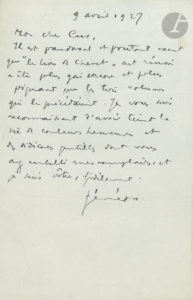 9 avril 1927
Mon cher Cus,
Il est paradoxal et pourtant vrai
que "le livre de Chevet", ait réussi
à être plus qui encore et plus
piquant que les trois volumes
qui le précédaient. Je vous suis
reconnaissant d'avoir teint la
vie de couleurs heureuses et
de
vous
mes exemplaires, et
je suis vôtre, fidèlement.